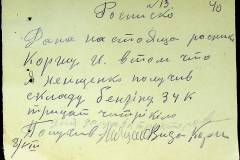 № 13 40
Росписка
Дана настояща росписка
Коржу И. в том что
Я Ненщенко получив
складу бензіну 34 К
тридцат читирі кіло
Получив
Видав Корж